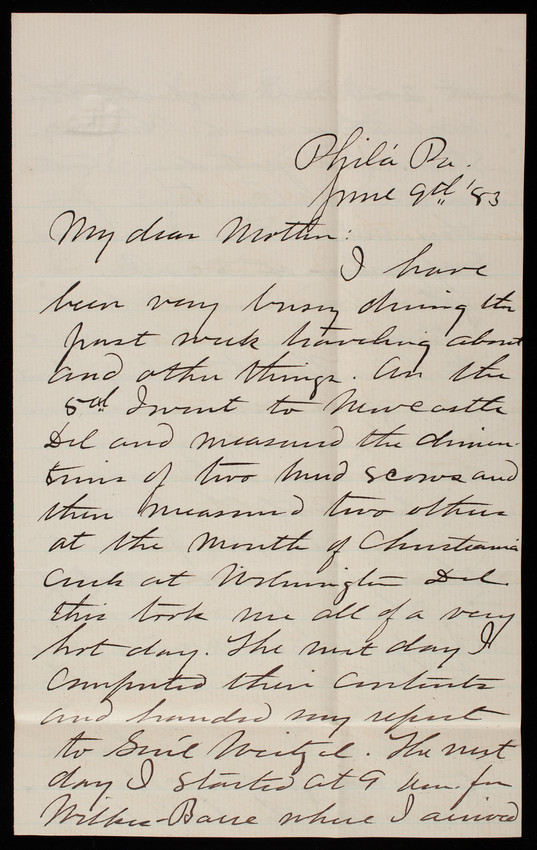 Phila Pa.
June 9th '83
My dear Mother:
I have
been very busy during the
past week traveling about
and other things. On the
5th I went to Newcastle
Del and measured the dimen-
tions of two mud scows and
then measured two others
at the mouth of Christiana
Creek at Wilmington Del
this took me all of a very
hot day. The next day I
computed their contents
and handed my report
to Gen'l Weitzel. The next
day I started at 9 am. for
Wilkes-Barre where I arrived